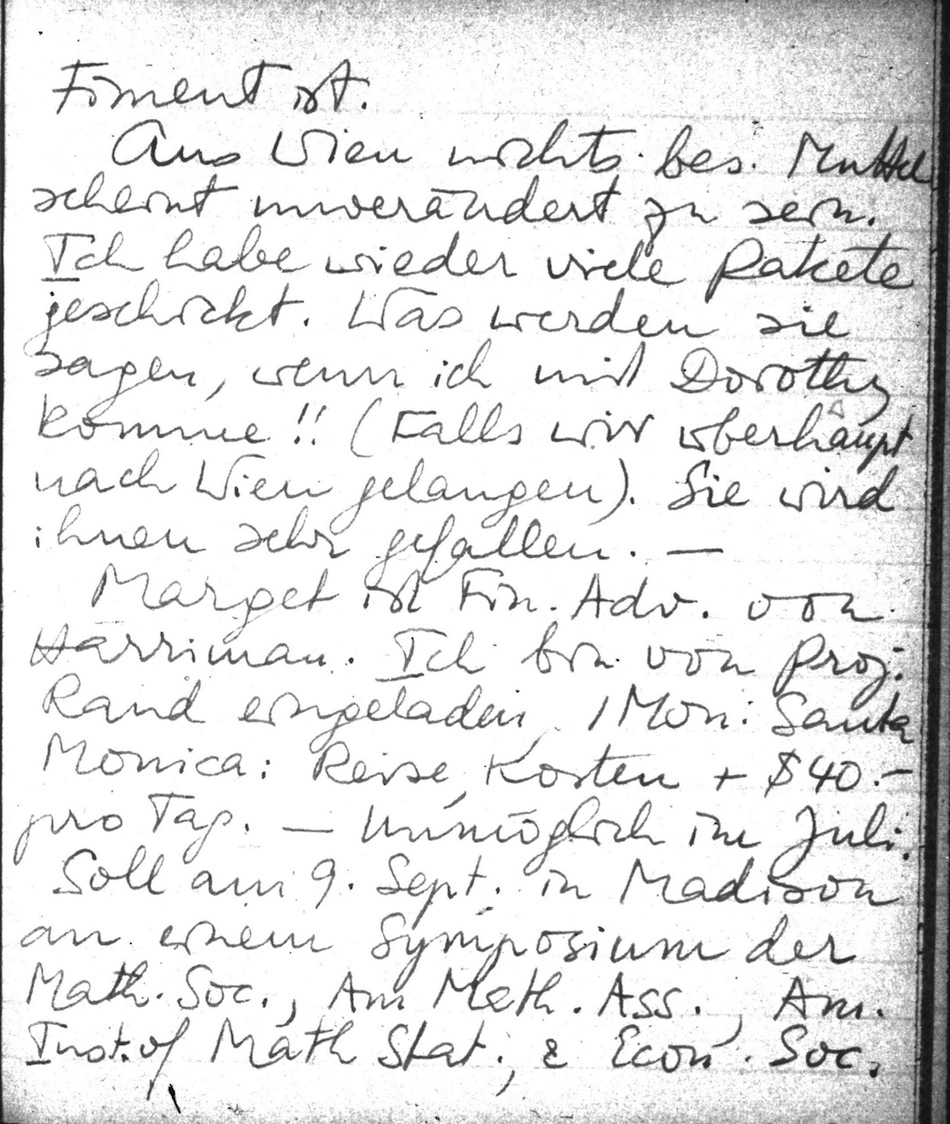 Firment ist.
Aus Wien nichts bes. Muttel
scheint unverändert zu sein.
Ich habe wieder viele Pakete
geschickt. Was werden sie
sagen, wenn ich mit Dorothy
komme!! (Falls wir überhaupt
nach Wien gelangen). Sie wird
ihnen sehr gefallen. —
Marget ist Fin. Adv. von
Harriman. Ich bin von Proj.
Rand eingeladen, 1 Mon: Santa
Monica: Reise, Kosten + $40.-
pro Tag. — Unmöglich im Juli.
Soll am 9. Sept. in Madison
an einem Symposium der
Math. Soc., Am Math. Ass., Am.
Inst. of Math Stat., & Econ. Soc.